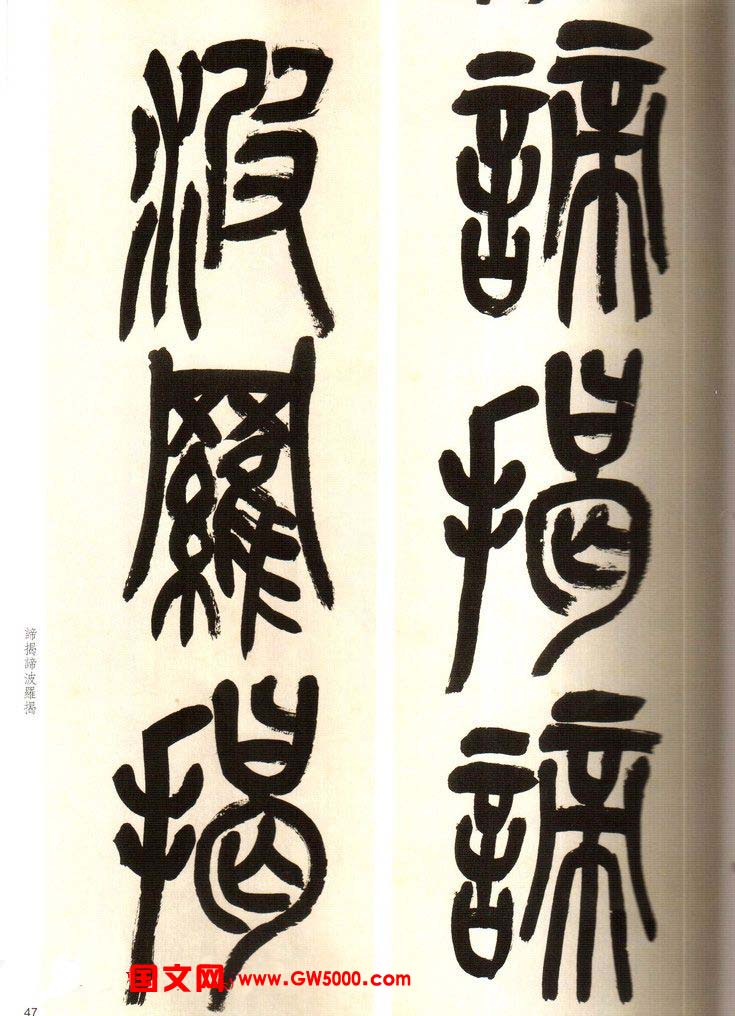 諦揭諦
波羅揭
諦揭諦波羅揭
国文网 www.GW5000.com
47